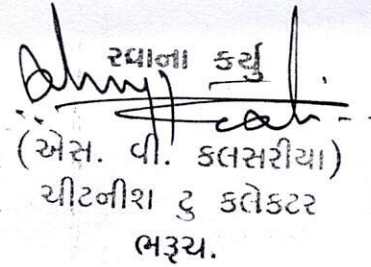 રવાના કર્યુ
(એસ. વી. કલસરીયા)
ચીટનીશ ટુ કલેકટર
ભરૂચ.